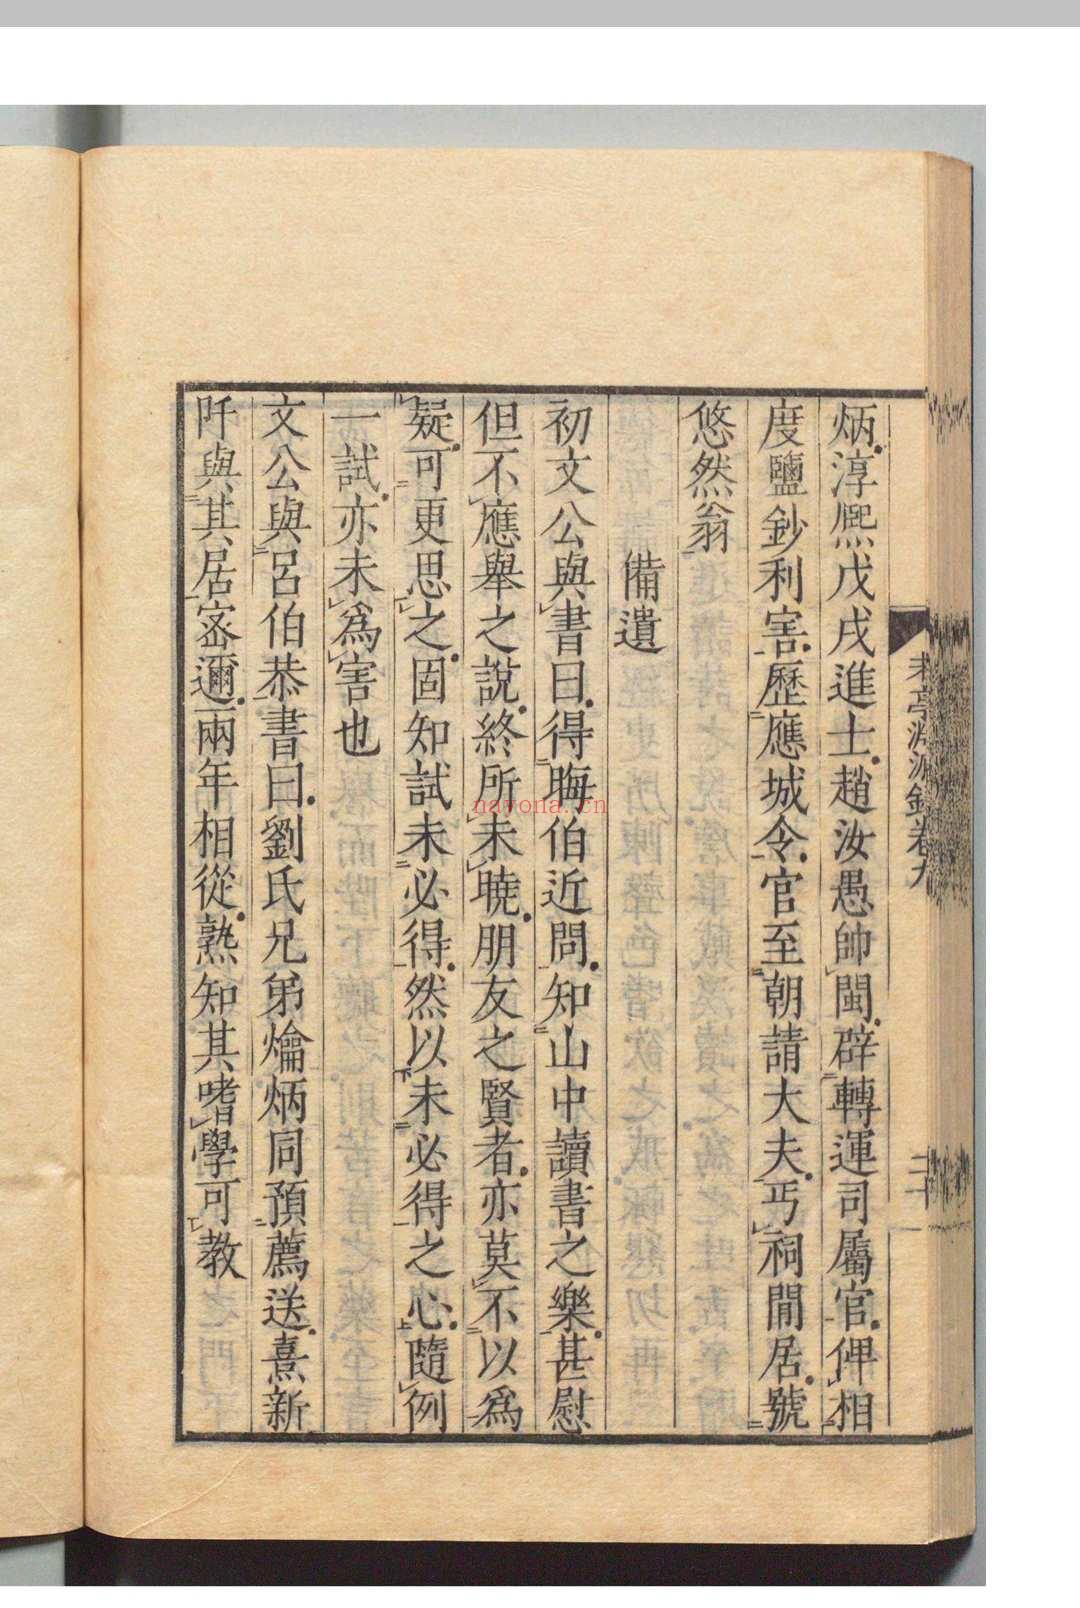 炳淳熙戊戌進士趙汝愚帥閩辟轉運司屬官俾相
度鹽鈔利害歷應城令官至朝請大夫丐祠閒居號
悠然翁
備遺
初文公與書曰得晦伯近問知山中讀書之樂甚慰
但不應舉之說終所未曉朋友之賢者亦莫不以為
疑可更思之固知試未必得然以未必得之心隨例
一試亦未為害也
文公與呂伯恭書曰劉氏兄弟爚炳同預薦送熹新
阡與其居密邇兩年相從熟知其嗜學可教
考亭淵源錄卷九
二十
nayona.cn